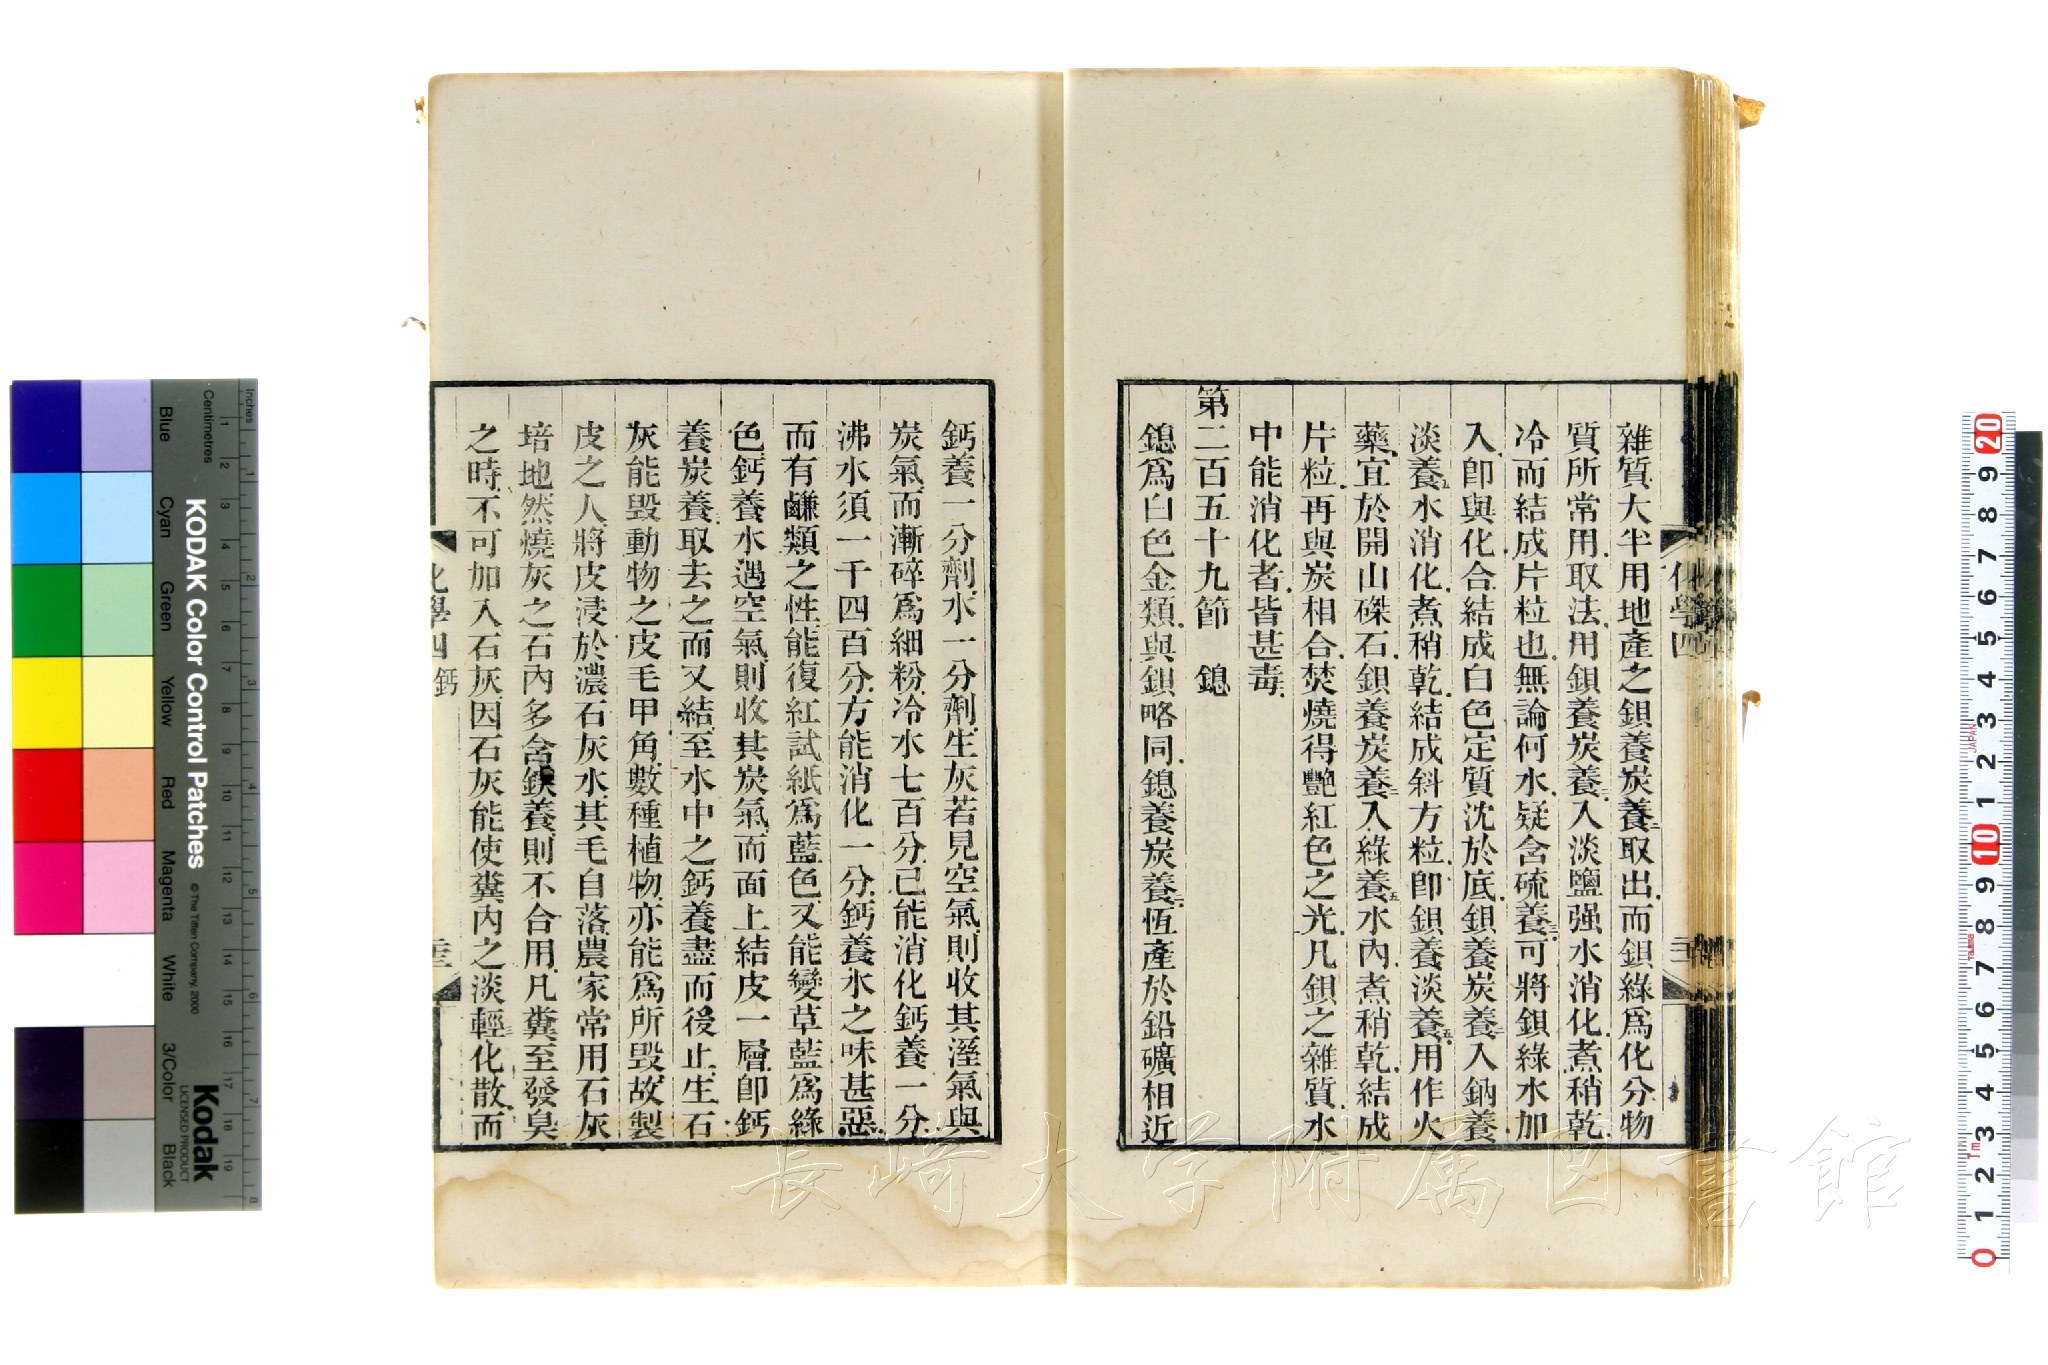 雜質大半用地產之鋇養炭養二取出而鋇綠爲化分物
質所常用取法用鋇養炭養二入淡鹽强水消化煮稍乾
冷而結成片粒也無論何水疑含硫養三可將鋇綠水加
入卽與化合結成白色定質沈於底鋇養炭養二入鈉養
淡養五水消化煮稍乾結成斜方粒卽鋇養淡養五用作火
藥宜於開山磔石鋇養炭養二入綠養五水內煮稍乾結成
片粒再與炭相合焚燒得艷紅色之光凡鋇之雜質水
中能消化者皆甚毒
第二百五十九節 鎴
鎴爲白色金類與鋇略同鎴養炭養二恆產於鉛礦相近
化學四
鈣養一分劑水一分劑生灰若見空氣則收其溼氣與
炭氣而漸碎爲細粉冷水七百分已能消化鈣養一分
沸水須一千四百分方能消化一分鈣養水之味甚惡
而有鹻類之性能復紅試紙爲藍色又能變草藍爲綠
色鈣養水遇空氣則收其炭氣而面上結皮一層卽鈣
養炭養二取去之而又結至水中之鈣養盡而後止生石
灰能毀動物之皮毛甲角數種植物亦能爲所毀故製
皮之人將皮浸於濃石灰水其毛自落農家常用石灰
培地然燒灰之石內多含鎂養則不合用凡糞至發臭
之時不可加入石灰因石灰能使糞內之淡輕三化散而
化學四 鈣
KODAK Color Control Patches
© The Tiffen Company, 2000
Kodak
LICENSED PRODUCT
Inches
Centimetres
Blue Cyan Green Yellow Red Magenta White 3/Color Black
長崎大学附属図書館